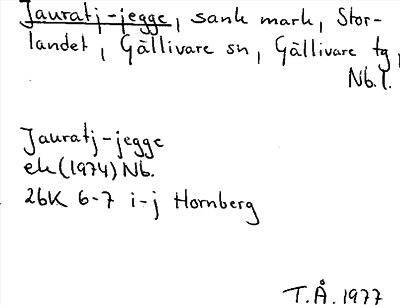 Jauratj-jegge, sank mark, Stor-
landet, Gällivare sn, Gällivare tg,
Nb.l.
Jauratj-jegge
ek (1974) Nb.
26K 6-7 i-j Hornberg
T.Å. 1977